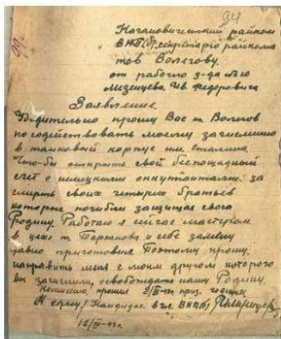 94
99.
Кагановический райком
ВКП(б) секретарю райкома
тов Волегову.
от рабочего з-да №10
Мезенцева Ив Федоровича
Заявление.
Убедительно прошу Вас т. Волегов
посодействовать моему зачислению
в танковый корпус им. Сталина.
Что-бы открыть свой беспощадный
счет с немецкими оккупантами за
смерть своих четырех братьев
которые погибли защищая свою
Родину. Работаю я сейчас мастером
в цехе т. и себе замену
давно приготовил Поэтому прошу.
направить меня с моим другом которого
вы зачислили, освобождать нашу Родину.
прошел годным
К сему / Кандидат в чл. ВКП(б)